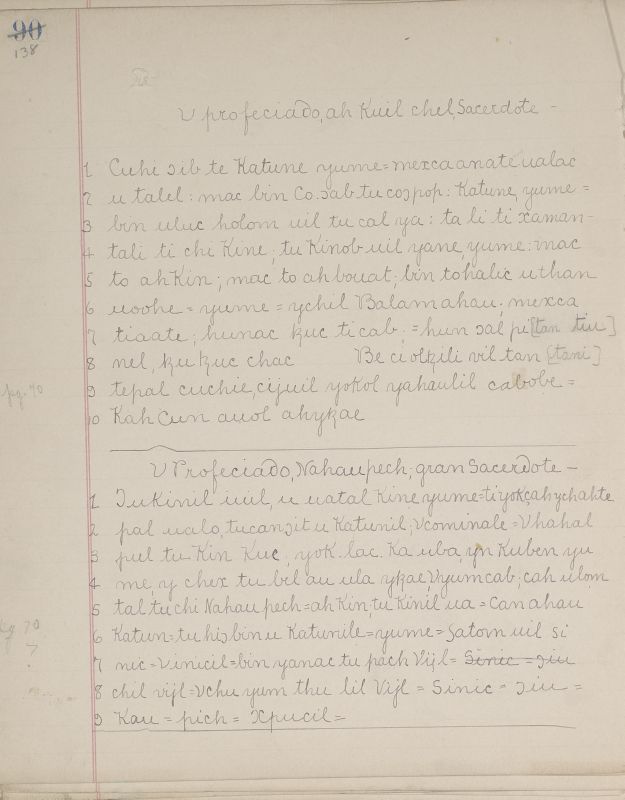 90
138
V profeciado, ah Kuil chel, Sacerdote -
1 Cuhi ɔib te Katune yume = mexca anate ualac
2 u talel : mac bin Co. ɔab tu coɔ pop : Katune, yume =
3 bin uluc holom uil tu cal ya : ta li ti xaman -
4 tali ti chi Kine ; tu Kinob uil yane, yume : mac
5 to ah Kin ; mac to ah bouat ; bin tohalic u than
6 uoohe = yume = ychil Balam ahau ; mexca
7 tiaate ; hunac ꝁuc ti cab. = hun ɔal pi [tan tiu]
8 nel, ꝁu ꝁuc chac Be ci olꝁili vil tan [tani]
pg. 40
9 tepal cuchie, cijuil yokol yahaulil cabobe =
10 Kah Cun auol ahyꝁae
V Profeciado, Nahaupech, gran Sacerdote -
1 Tu Kinil uil, u uatal Kine yume = ti yokcahychahte
2 pal ualo, tucanɔit u Katunil, Vcominale = Vhahal
3 pul tu Kin Kue, yok. lac. Ka uba, yn Kuben yu
4 me, y chex tu bil au ula yꝁae, Vyumcab, cah ulom
5 tal tu chi Nahau pech = ah Kin, tu Kinil ua = Can ahau
pg 70
6 Katun = tu hiɔ bin u Katunile = yume = Satom uil si
?
7 nic = Vinicil = bin yanac tu pach Vijl = Sinic = ɔiu
8 chil vijl = Vchu yum thu lil Vijl = Sinic = ɔiu =
9 Kau = pich = Xpucil =